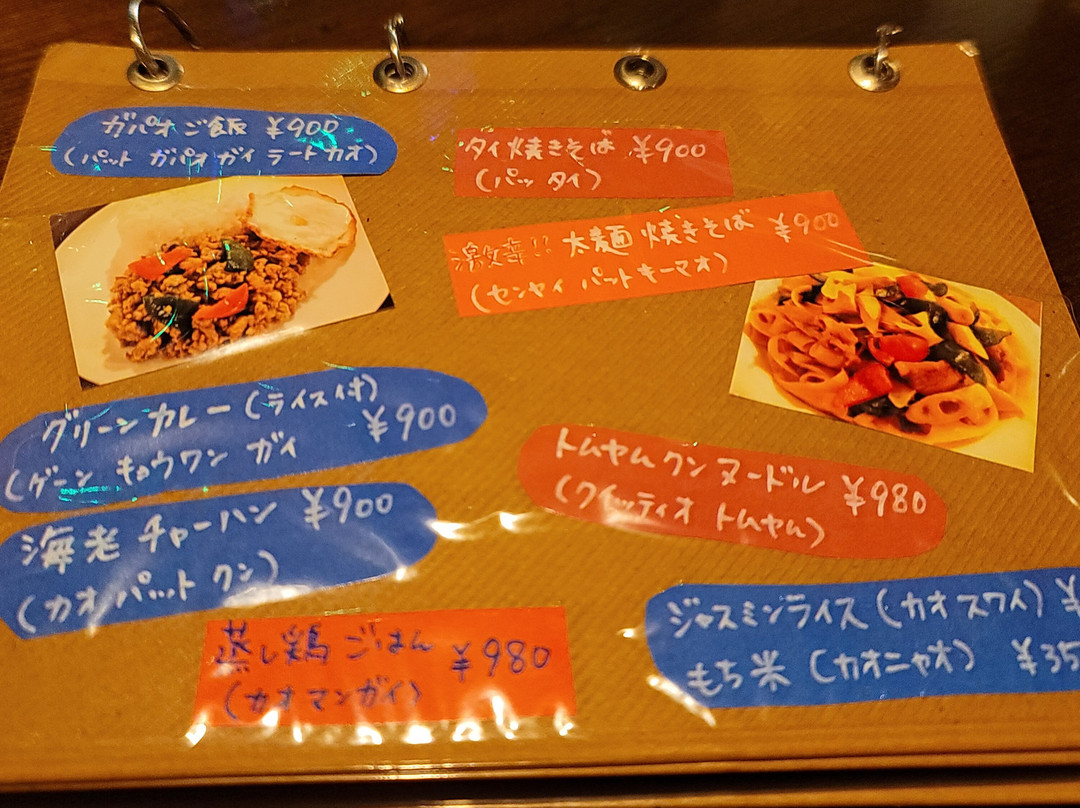 ガパオご飯 ¥900
(パット ガパオ ガイ ラートカオ)
タイ焼きそば ¥900
(パッ タイ)
激辛!! 太麺 焼きそば ¥900
(センヤイ パットキーマオ)
グリーンカレー(ライス付)
¥900
(ゲーン キョウワン ガイ
海老 チャーハン ¥900
(カオ パット クン)
トムヤムクン ヌードル ¥980
(クイッティオ トムヤム)
蒸し鶏 ごはん ¥980
(カオマンガイ)
ジャスミンライス(カオスワイ) ¥
もち米 (カオニャオ) ¥35